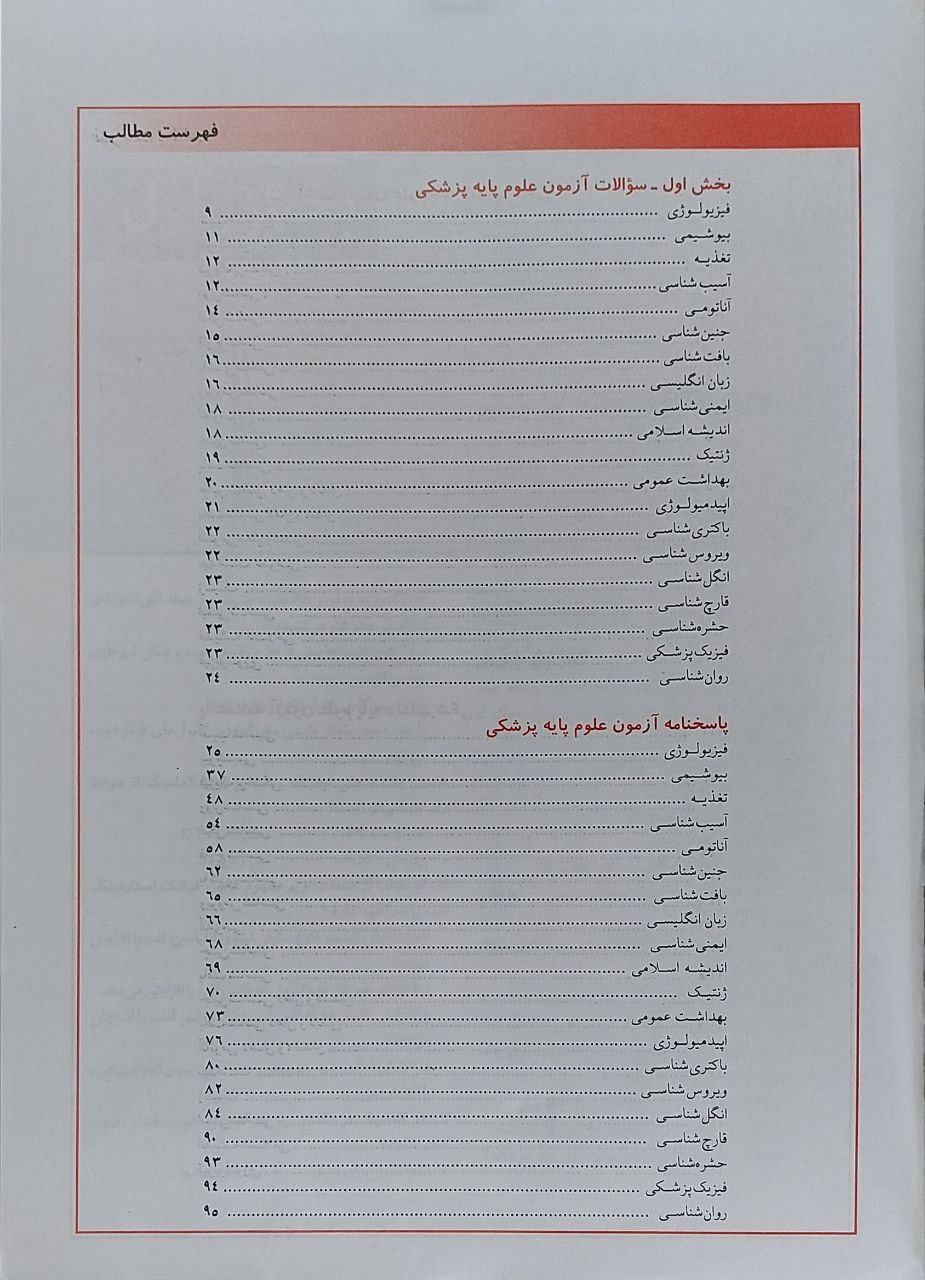 فهرست مطالب
بخش اول ـ سؤالات آزمون علوم پایه پزشکی
فیزیولـوژی ........................ ۹
بیوشـیمی ........................ ۱۱
تغذیـه ........................ ۱۲
آسیب‌شناسی ........................ ۱۲
آناتومـی ........................ ۱٤
جنین‌شناسی ........................ ۱٥
بافت‌شناسـی ........................ ۱٦
زبان انگلیسـی ........................ ۱٦
ایمنی‌شناسـی ........................ ۱۸
اندیشـه اسـلامی ........................ ۱۸
ژنتیک ........................ ۱۹
بهداشـت عمومی ........................ ۲۰
اپیدمیولـوژی ........................ ۲۱
باکتری‌شناسـی ........................ ۲۲
ویروس‌شناسـی ........................ ۲۲
انگل‌شناسـی ........................ ۲۳
قارچ‌شناسـی ........................ ۲۳
حشره‌شناسـی ........................ ۲۳
فیزیک‌پزشـکی ........................ ۲۳
روان‌شناسـی ........................ ۲٤
پاسخنامه آزمون علوم پایه پزشکی
فیزیولـوژی ........................ ۲٥
بیوشـیمی ........................ ۳۷
تغذیـه ........................ ٤۸
آسیب‌شناسـی ........................ ٥٤
آناتومـی ........................ ٥۸
جنین‌شناسـی ........................ ٦۲
بافت‌شناسـی ........................ ٦٥
زبان انگلیسـی ........................ ٦٦
ایمنی‌شناسـی ........................ ٦۸
اندیشـه اسـلامی ........................ ٦۹
ژنتیـک ........................ ۷۰
بهداشـت عمومی ........................ ۷۳
اپیدمیولـوژی ........................ ۷٦
باکتری‌شناسـی ........................ ۸۰
ویروس‌شناسـی ........................ ۸۲
انگل‌شناسـی ........................ ۸٤
قارچ‌شناسـی ........................ ۹۰
حشره‌شناسـی ........................ ۹۳
فیزیک‌پزشـکی ........................ ۹٤
روان‌شناسـی ........................ ۹٥